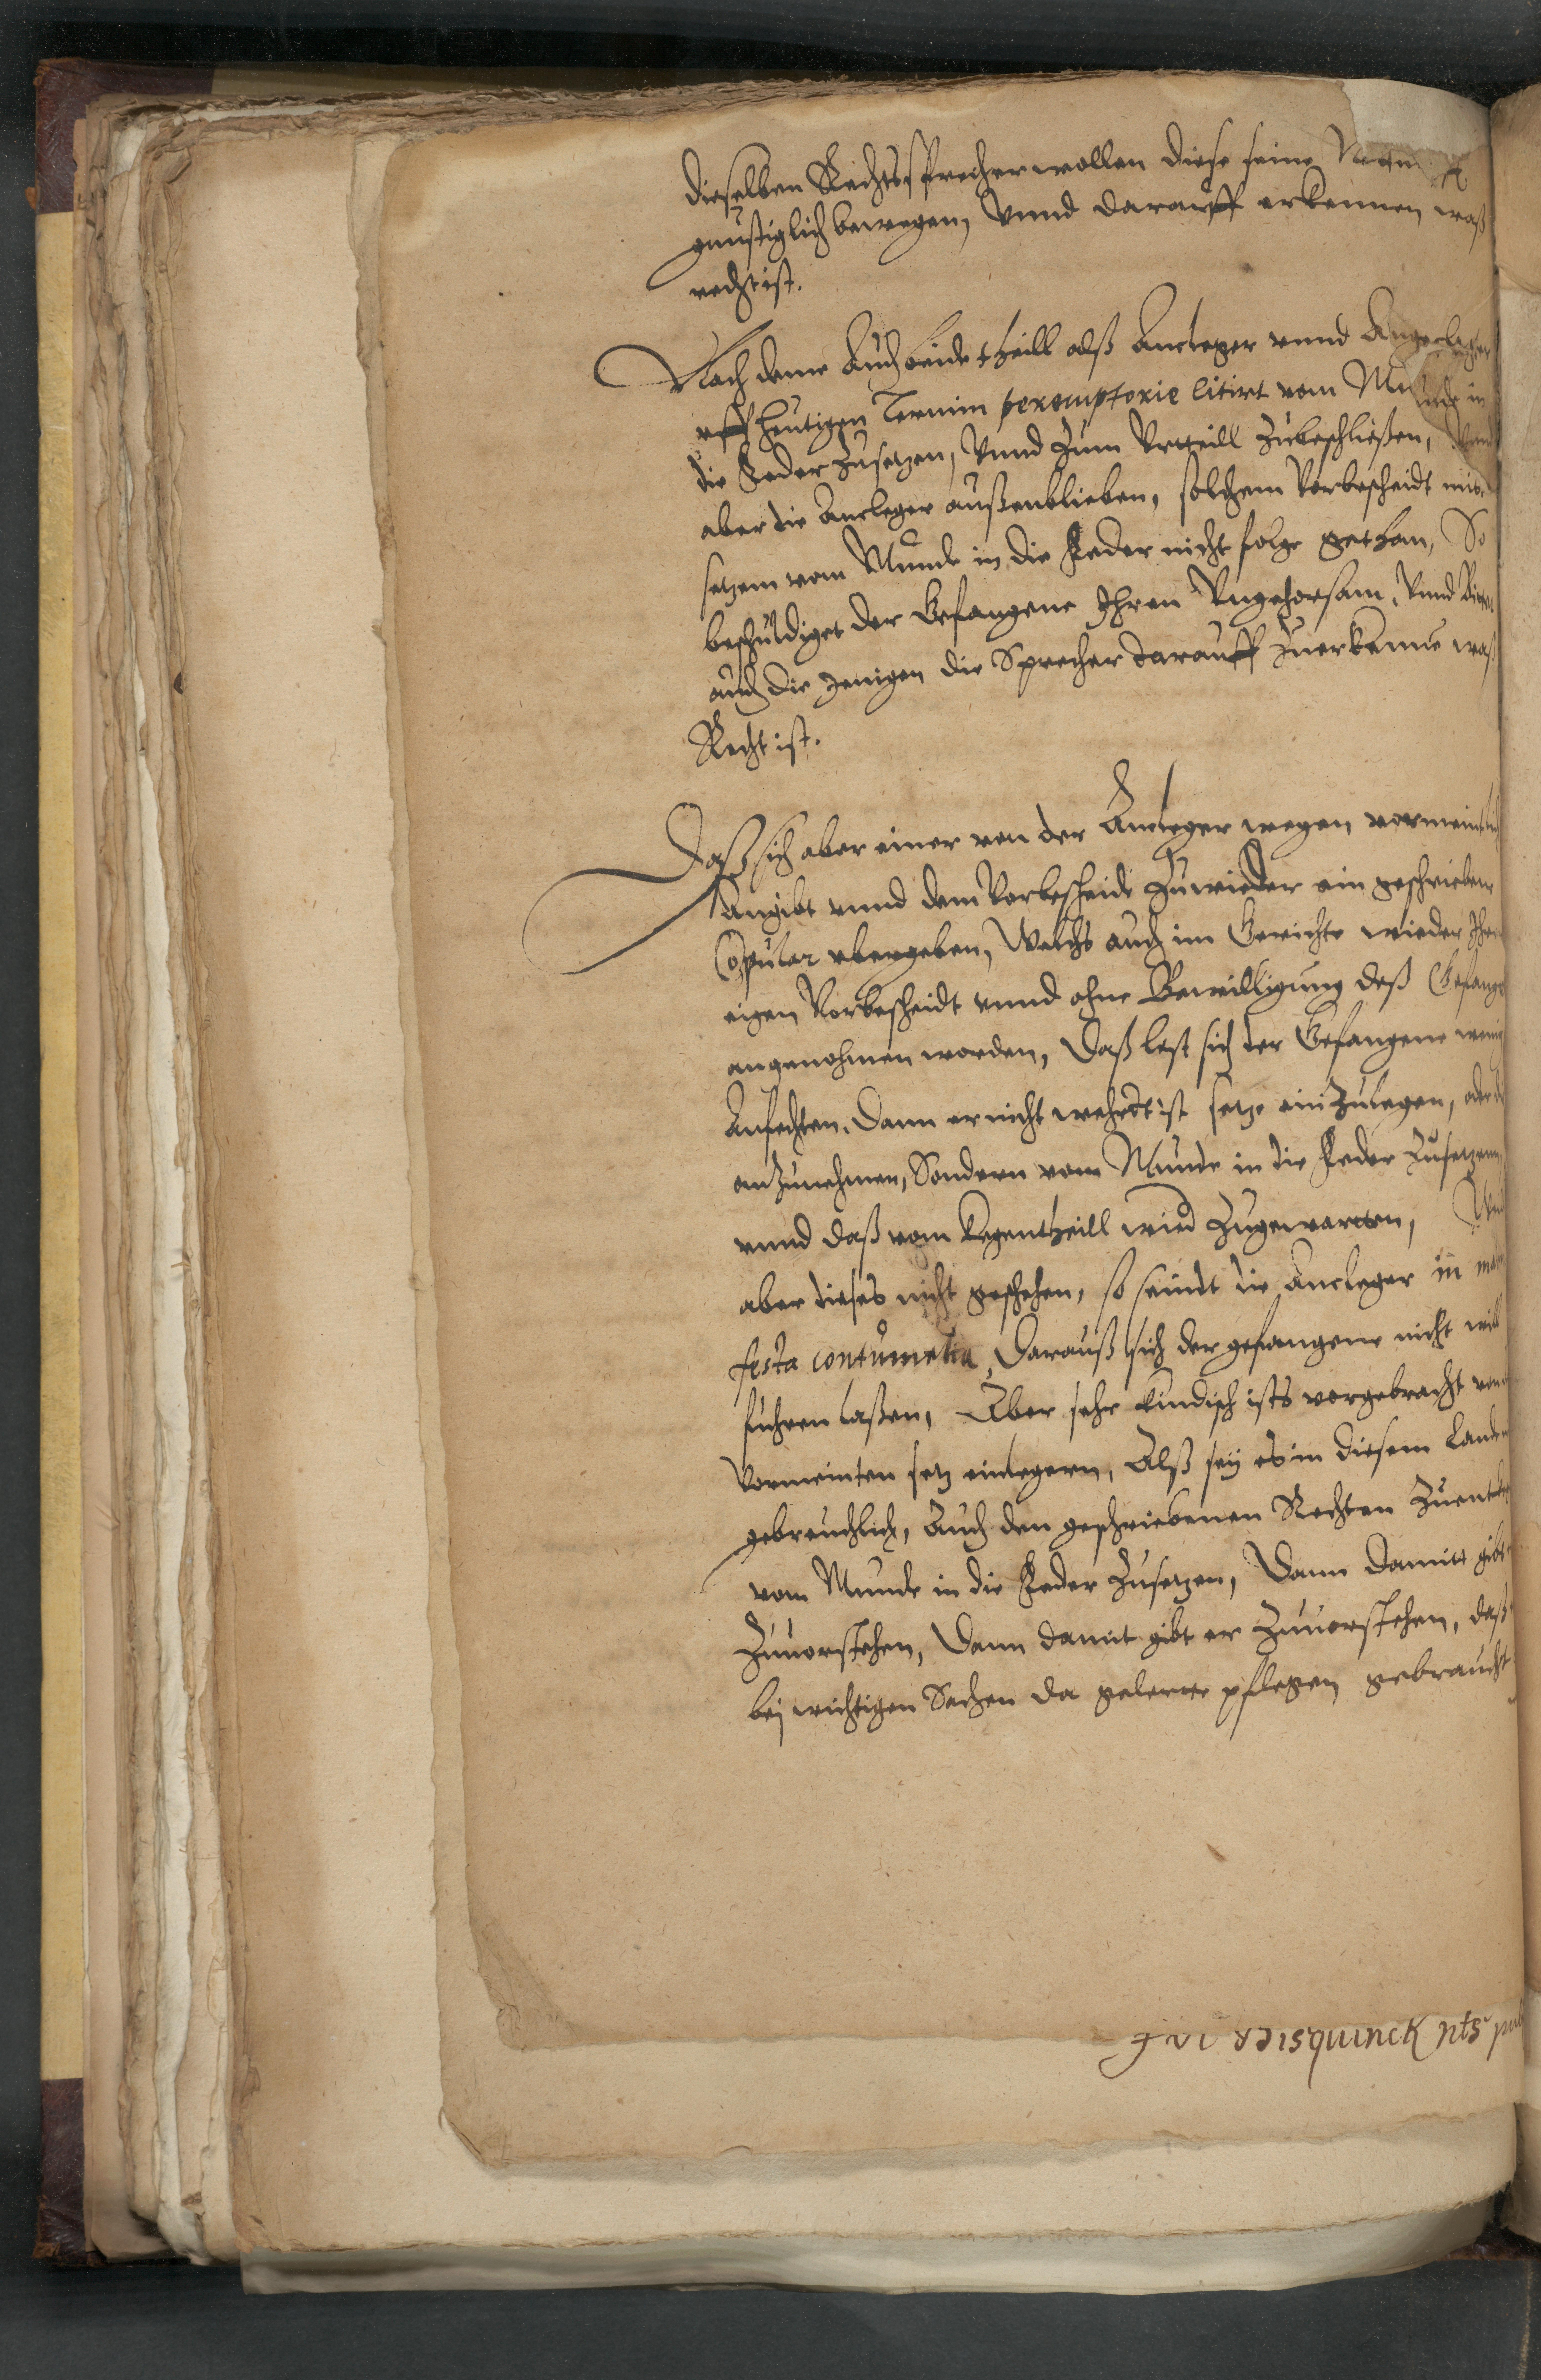 dieselben Rechtssprecher wollen diese seine
gnüstiglich bewegen, Vnnd darauff erkennen waß
recht ist.
Nach deme Auch beide theill alß Ancleger vnnd Angeclagter
vff heutigen Termin peremptorie citirt vom Munde in
die Feder zusetzen, Vnnd zum Vrtheill zubeschließen,
aber die Ancleger außenblieben, solchem Vorbescheidt mit
setzem vom Munde in die Feder nicht folge gethan, So
beschuldiget der Gefangene Ihren Vngehorsam, Vnnd
auch die jenigen die Sprecher darauff zuerkenne waß
Recht ist.
Daß sich aber einer von der Ancleger wegen vormeintlich
Angibt vnnd dem Vorbescheide zuwieder ein geschrieben
Copular vbergeben, Welchs auch im Gerichte wieder Ihren
eigen Vorbescheidt vnnd ohne Bewilligung deß Gefangen
angenohmen worden, Daß lest sich der Gefangene wenig
Anfechten, Dann er nicht wehrdt ist setze ein zulegen, oder
anzunehmen, Sondern vom Munde in die Feder zusetzenn,
vnnd daß vom Kegentheill wird zugewarten,
aber dieses nicht geschehen, so seindt die Ancleger in mani
festa contumatia, Darauß sich der gefangene nicht will
fuhren laßen, Aber sehr kindisch ists vorgebracht vom
Vormeinten setz einlegern, Alß seÿ es in diesem Lande
gebreuchlich, Auch den geschriebenen Rechten
vom Munde in die Feder zusetzen, Dann damitt gibt
zuuorstehen, Dann damit gibt er zuuorstehen, daß
beÿ wichtigen Sachen da gelerte pflegen gebraucht